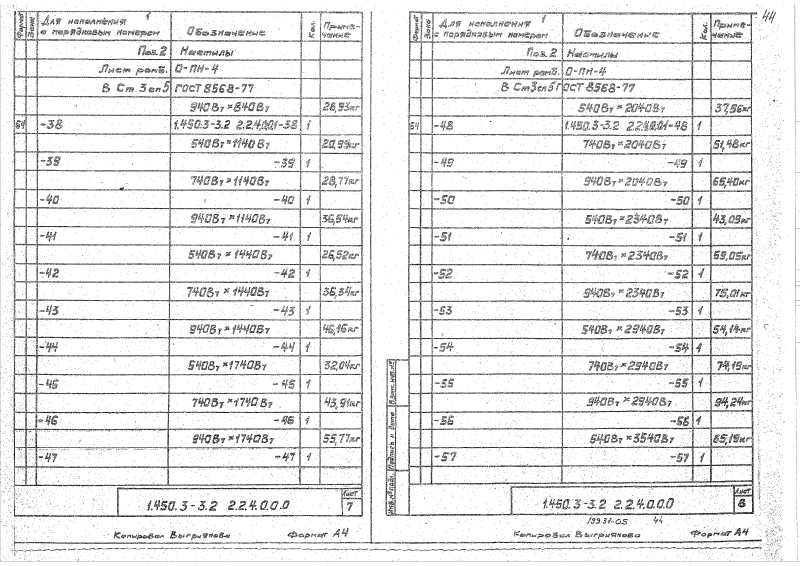 44
Формат
Зона
Для наполнения 1
с порядковым номером
Обозначение
Кол.
Приме-
чание
Поз.2 Настилы
Лист ромб. О-ПН-4
В Ст.3сп5 ГОСТ 8568-77
940В7×840В7 26,93кг
64 -38 1.450.3-3.2 2.2.4.0.0.1-38 1
540В7×1140В7 20,99кг
-39 -39 1
740В7×1140В7 28,77кг
-40 -40 1
940В7×1140В7 36,54кг
-41 -41 1
540В7×1440В7 26,52кг
-42 -42 1
740В7×1440В7 36,34кг
-43 -43 1
940В7×1440В7 46,16кг
-44 -44 1
540В7×1740В7 32,04кг
-45 -45 1
740В7×1740В7 43,91кг
-46 -46 1
940В7×1740В7 55,77кг
-47 -47 1
1.450.3-3.2 2.2.4.0.0.0
Лист
7
Копировал Выгриянова Формат А4
Формат
Зона
Для наполнения 1
с порядковым номером
Обозначение
Кол.
Приме-
чание
Поз.2 Настилы
Лист ромб. О-ПН-4
В Ст3сп5 ГОСТ 8568-77
540В7×2040В7 37,56кг
64 -48 1.450.3-3.2 2.2.4.0.0.1-48 1
740В7×2040В7 51,48кг
-49 -49 1
940В7×2040В7 65,40кг
-50 -50 1
540В7×2340В7 43,09кг
-51 -51 1
740В7×2340В7 59,05кг
-52 -52 1
940В7×2340В7 75,01кг
-53 -53 1
540В7×2940В7 54,14кг
-54 -54 1
740В7×2940В7 74,19кг
-55 -55 1
940В7×2940В7 94,24кг
-56 -56 1
540В7×3540В7 65,19кг
-57 -57 1
Инв.№подл. Подпись и дата Взам.инв.№
1.450.3-3.2 2.2.4.0.0.0
Лист
8
19931-05 44
Копировал Выгриянова Формат А4